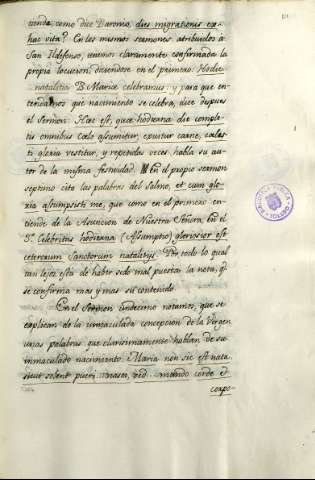 tienda como dice Baronio, dies migrationis ex
hac vita? En los mismos sermones atribuidos a
San Ildefonso, vemos claramente confirmada la
propia locucion, diciendose en el primero: Hodie
natalitia B. Mariæ celebramus: y para que en-
tendamos que nacimiento se celebra, dice despues
el Sermon: Hæc est, quæ hodierna die comple-
tis omnibus Cœlo assumitur, exuitur carne, cœles-
ti gloria vestitur, y repetidas veces, habla su au-
tor de la misma festividad. En el propio sermon
septimo cita las palabras del Salmo, et cum glo-
ria assumpsisti me, que como en el primero en-
tiende de la Asuncion de Nuestra Señora, en el
3.º Celebritas hodierna (Assumptio) gloriosior est
ceterorum Sanctorum natalitiis. Por todo lo qual
tan lejos esta de haber sido mal puesta la nota, q.e
se confirma mas y mas su contenido.
En el Sermon undecimo notamos, que se
explican de la inmaculada concepcion de la Virgen
unas palabras que clarisimamente hablan de su
inmaculado nacimiento. Maria non sic est nata
sicut solent pueri nasci, sed mundo corde et
corpo-